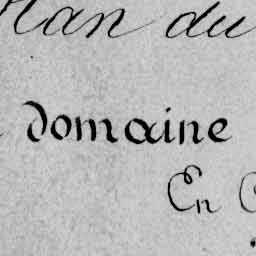 Plan du
domaine
En